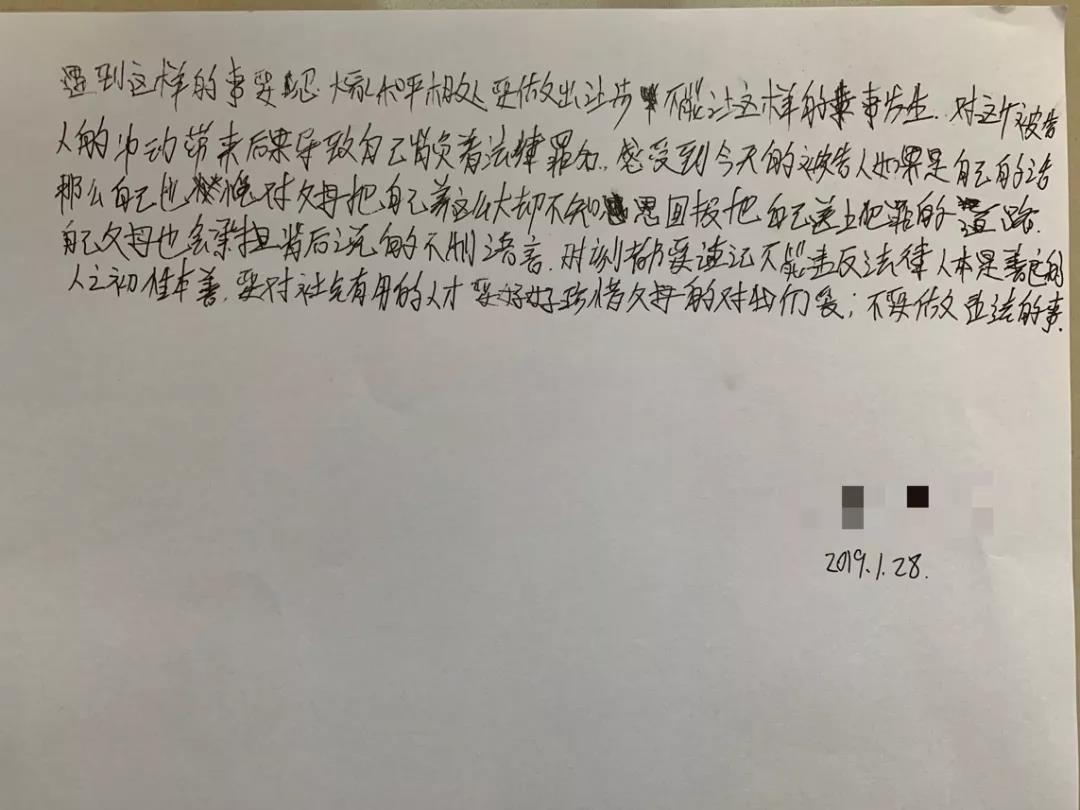 遇到这样的事要忍. 大家和平相处 要做出让步 不能让这样的事发生. 对这个被告
人的冲动带来后果导致自己背负着法律罪名. 感受到今天的被告人如果是自己的话
那么自己也 愧对父母把自己养这么大却不知 恩回报把自己送上犯罪的道路.
自己父母也会承担背后之说的不 语言. 时刻都要谨记不能违反法律 人本是善良的
人之初性本善. 要对社会有用的人才 要好好珍惜父母的对我们爱; 不要做违法的事.
2019.1.28.